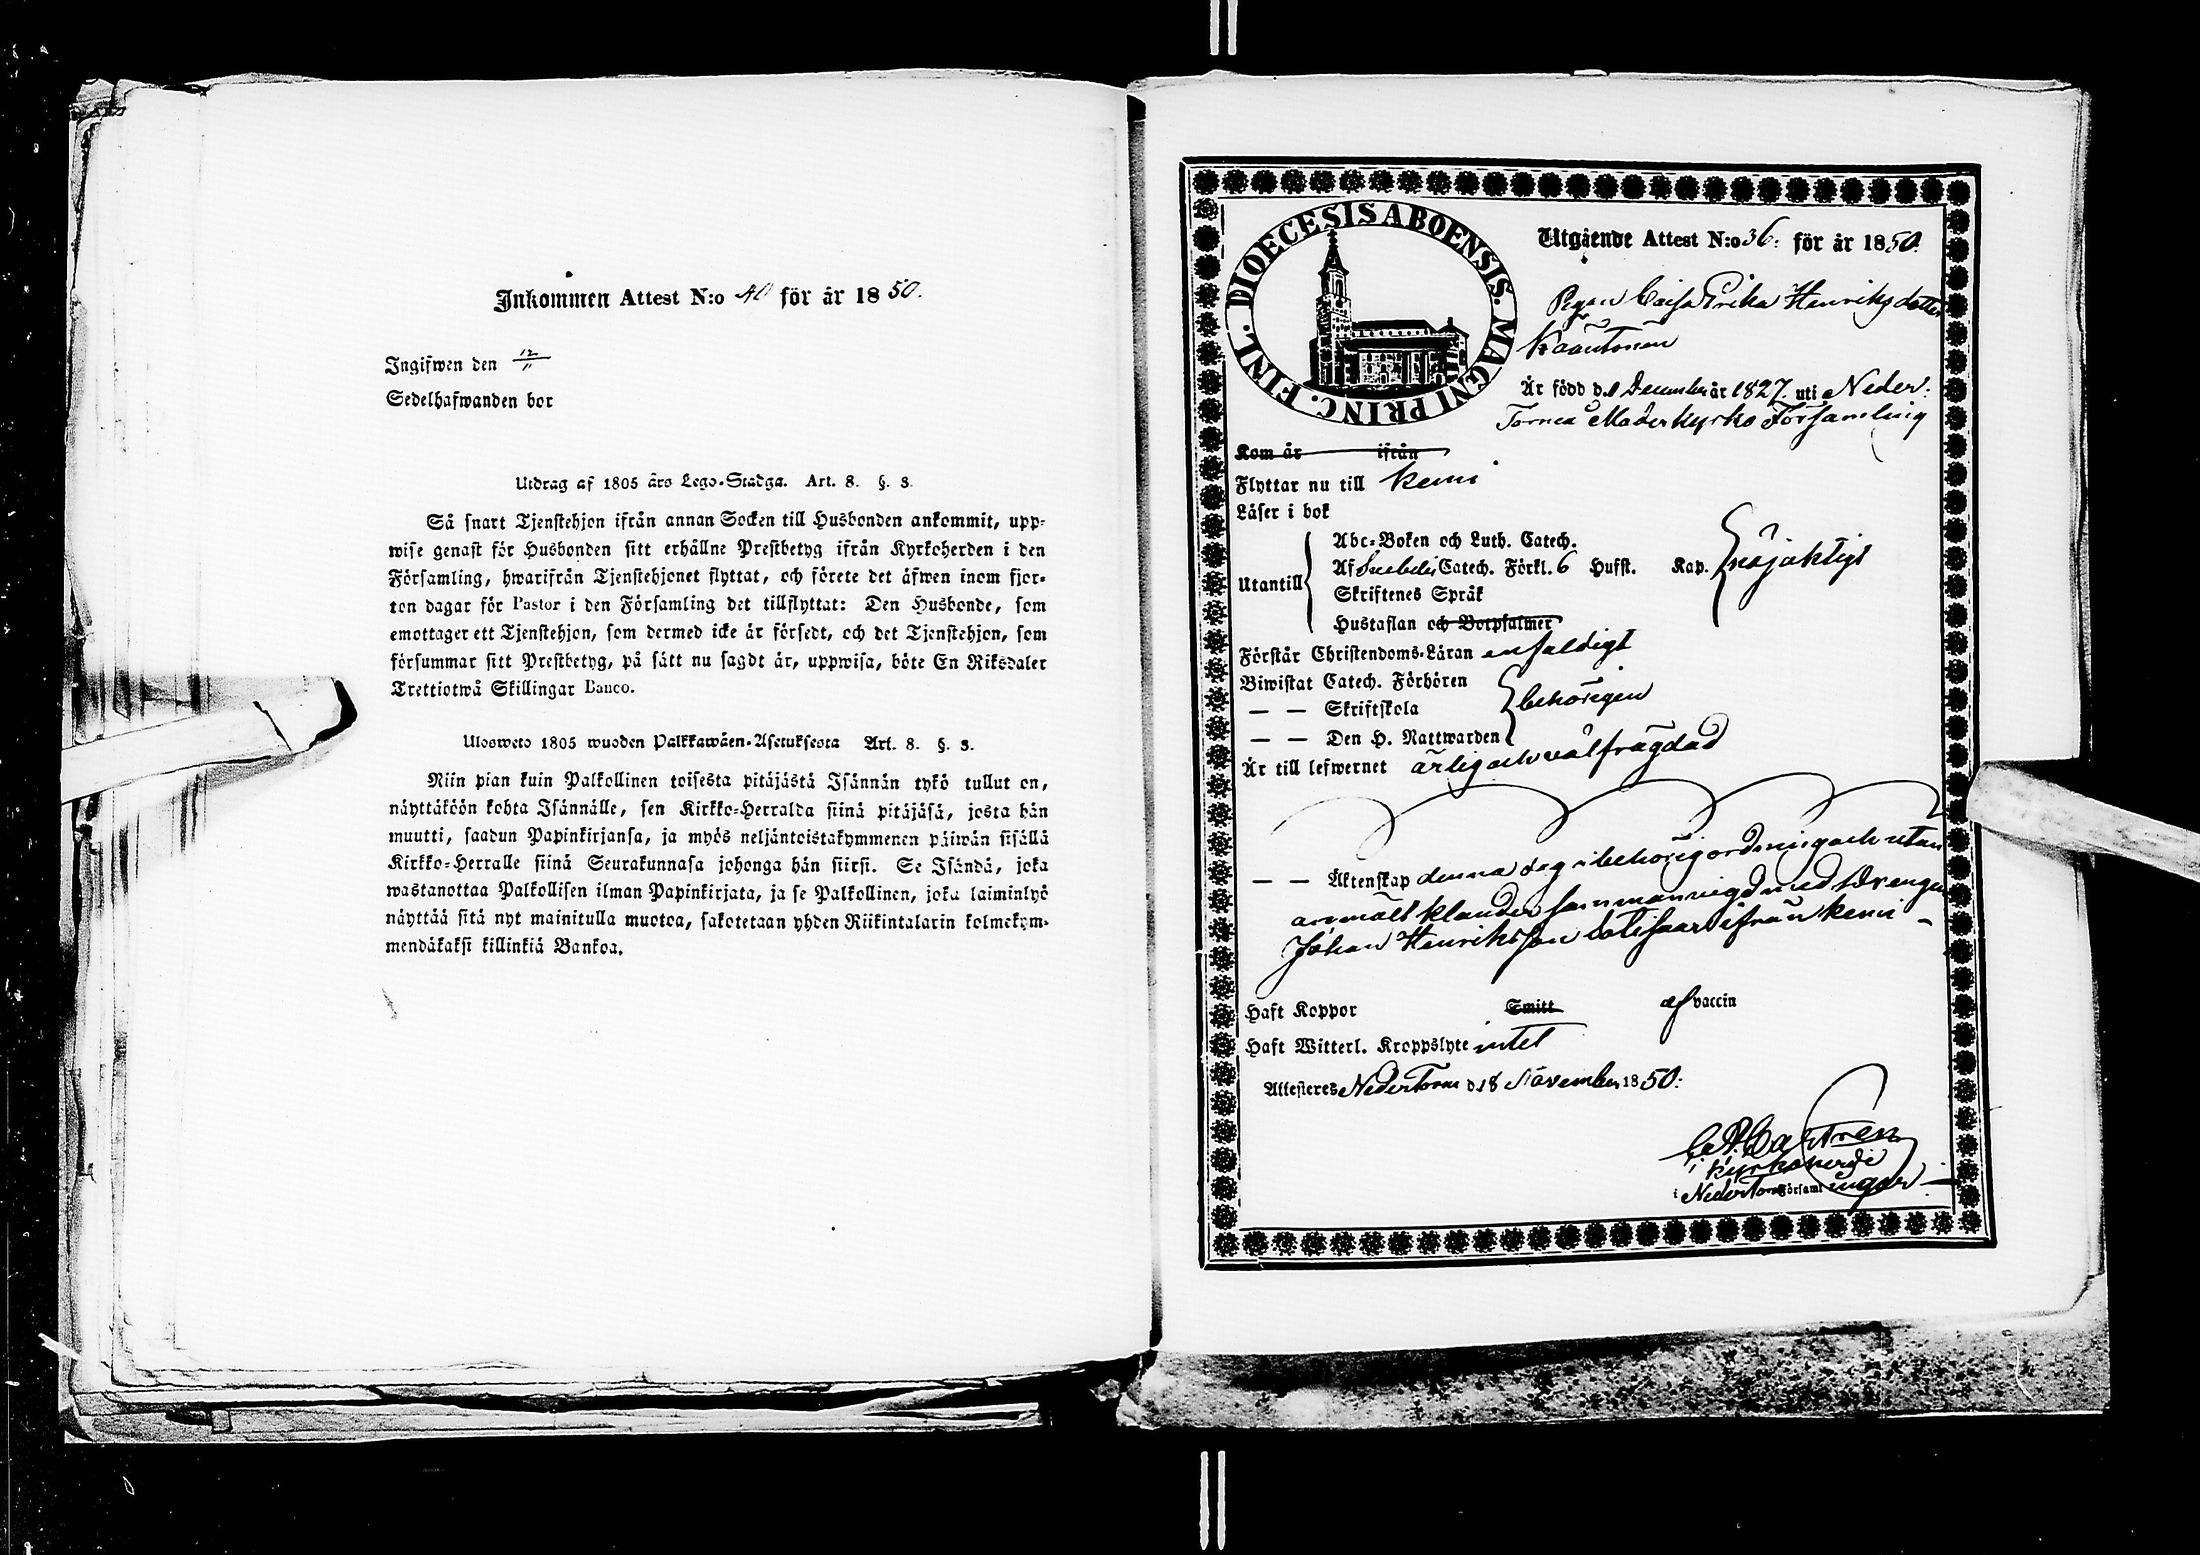 Inkommen Attest N:o 40 för år 1850.
Ingifwen den 12/11
Sedelhafwanden bor
Utdrag af 1805 års Lego-Stadga. Art. 8. §. 3.
Så snart Tjenstehjon ifrån annan Socken till Husbonden ankommit, upp-
wise genast för Husbonden sitt erhållne Prestbetyg ifrån Kyrkoherden i den
Församling, hwarifrån Tjenstehjonet flyttat, och förete det äfwen inom fjor-
ton dagar för Pastor i den Församling det tillflyttat: Den Husbonde, som
emottager ett Tjenstehjon, som dermed icke är försedt, och det Tjenstehjon, som
försummar sitt Prestbetyg, på sätt nu sagdt är, uppwisa, böte En Riksdaler
Trettiotwå Skillingar Banco.
Ulosweto 1805 wuoden Palkkawäen-Asetuksesta Art. 8. §. 3.
Niin pian kuin Palkollinen toisesta pitäjästä Isännän tykö tullut on,
näyttäköön kohta Isännälle, sen Kirkko-Herralda siinä pitäjäsä, josta hän
muutti, saadun Papinkirjansa, ja myös neljäntoistakymmenen päiwän sisällä
Kirkko-Herralle siinä Seurakunnasa johonga hän siirsi. Se Isändä, joka
wastanottaa Palkollisen ilman Papinkirjata, ja se Palkollinen, joka laiminlyö
näyttää sitä nyt mainitulla muotoa, sakotetaan yhden Riikintalarin kolmekym-
mendäkaksi killinkiä Bankoa.
DIOECESIS ABOENSIS. MAGNI PRINC. FINL.
Utgående Attest N:o 36: för år 1850.
Pigan Caisa Erika Henriksdotter
Kaantonen
Är född d. 1 December år 1827. uti Neder:
Torneå Moderkyrko Församling
Kom år ifrån
Flyttar nu till Kemi
Läser i bok
Abc-Boken och Luth. Catech.
Utantill Af Svebelii Catech. Förkl. 6 Hufst. Kap. nöjaktigt
Skriftenes Språk
Hustaflan och Botpsalmer
Förstår Christendoms-Läran enfaldigt
Biwistat Catech. Förhören
— — Skriftskola behörigen
— — Den H. Nattwarden
Är till lefwernet ärlig och välfrägdad
— — Äktenskap denna dag i behörig ordning och utan
anmält klander sammanvigd med Drengen
Johan Henriksson ifrån Kemi -
Haft Koppor Smitt af vaccin
Haft Witterl. Kroppslyte intet
Attesteres NederTorne d. 8 November 1850:
C A Castrén
Kyrkoherde
i NederTorne Församlingar